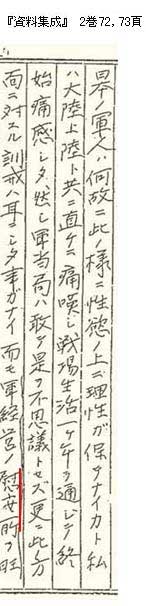 『資料集成』 2巻72,73頁
日本ノ軍人ハ何故ニ此ノ様ニ性慾ノ上ニ理性ガ保テナイカト私
ハ大陸上陸ト共ニ直チニ痛嘆シ戦場生活一ケ年ヲ通ジテ終
始痛感シタ 然シ軍当局ハ敢テ是ヲ不思議トセズ更ニ此ノ方
面ニ対スル訓戒ハ耳ニシタ事ガナイ 而モ軍経営ノ慰安所ヲ旺